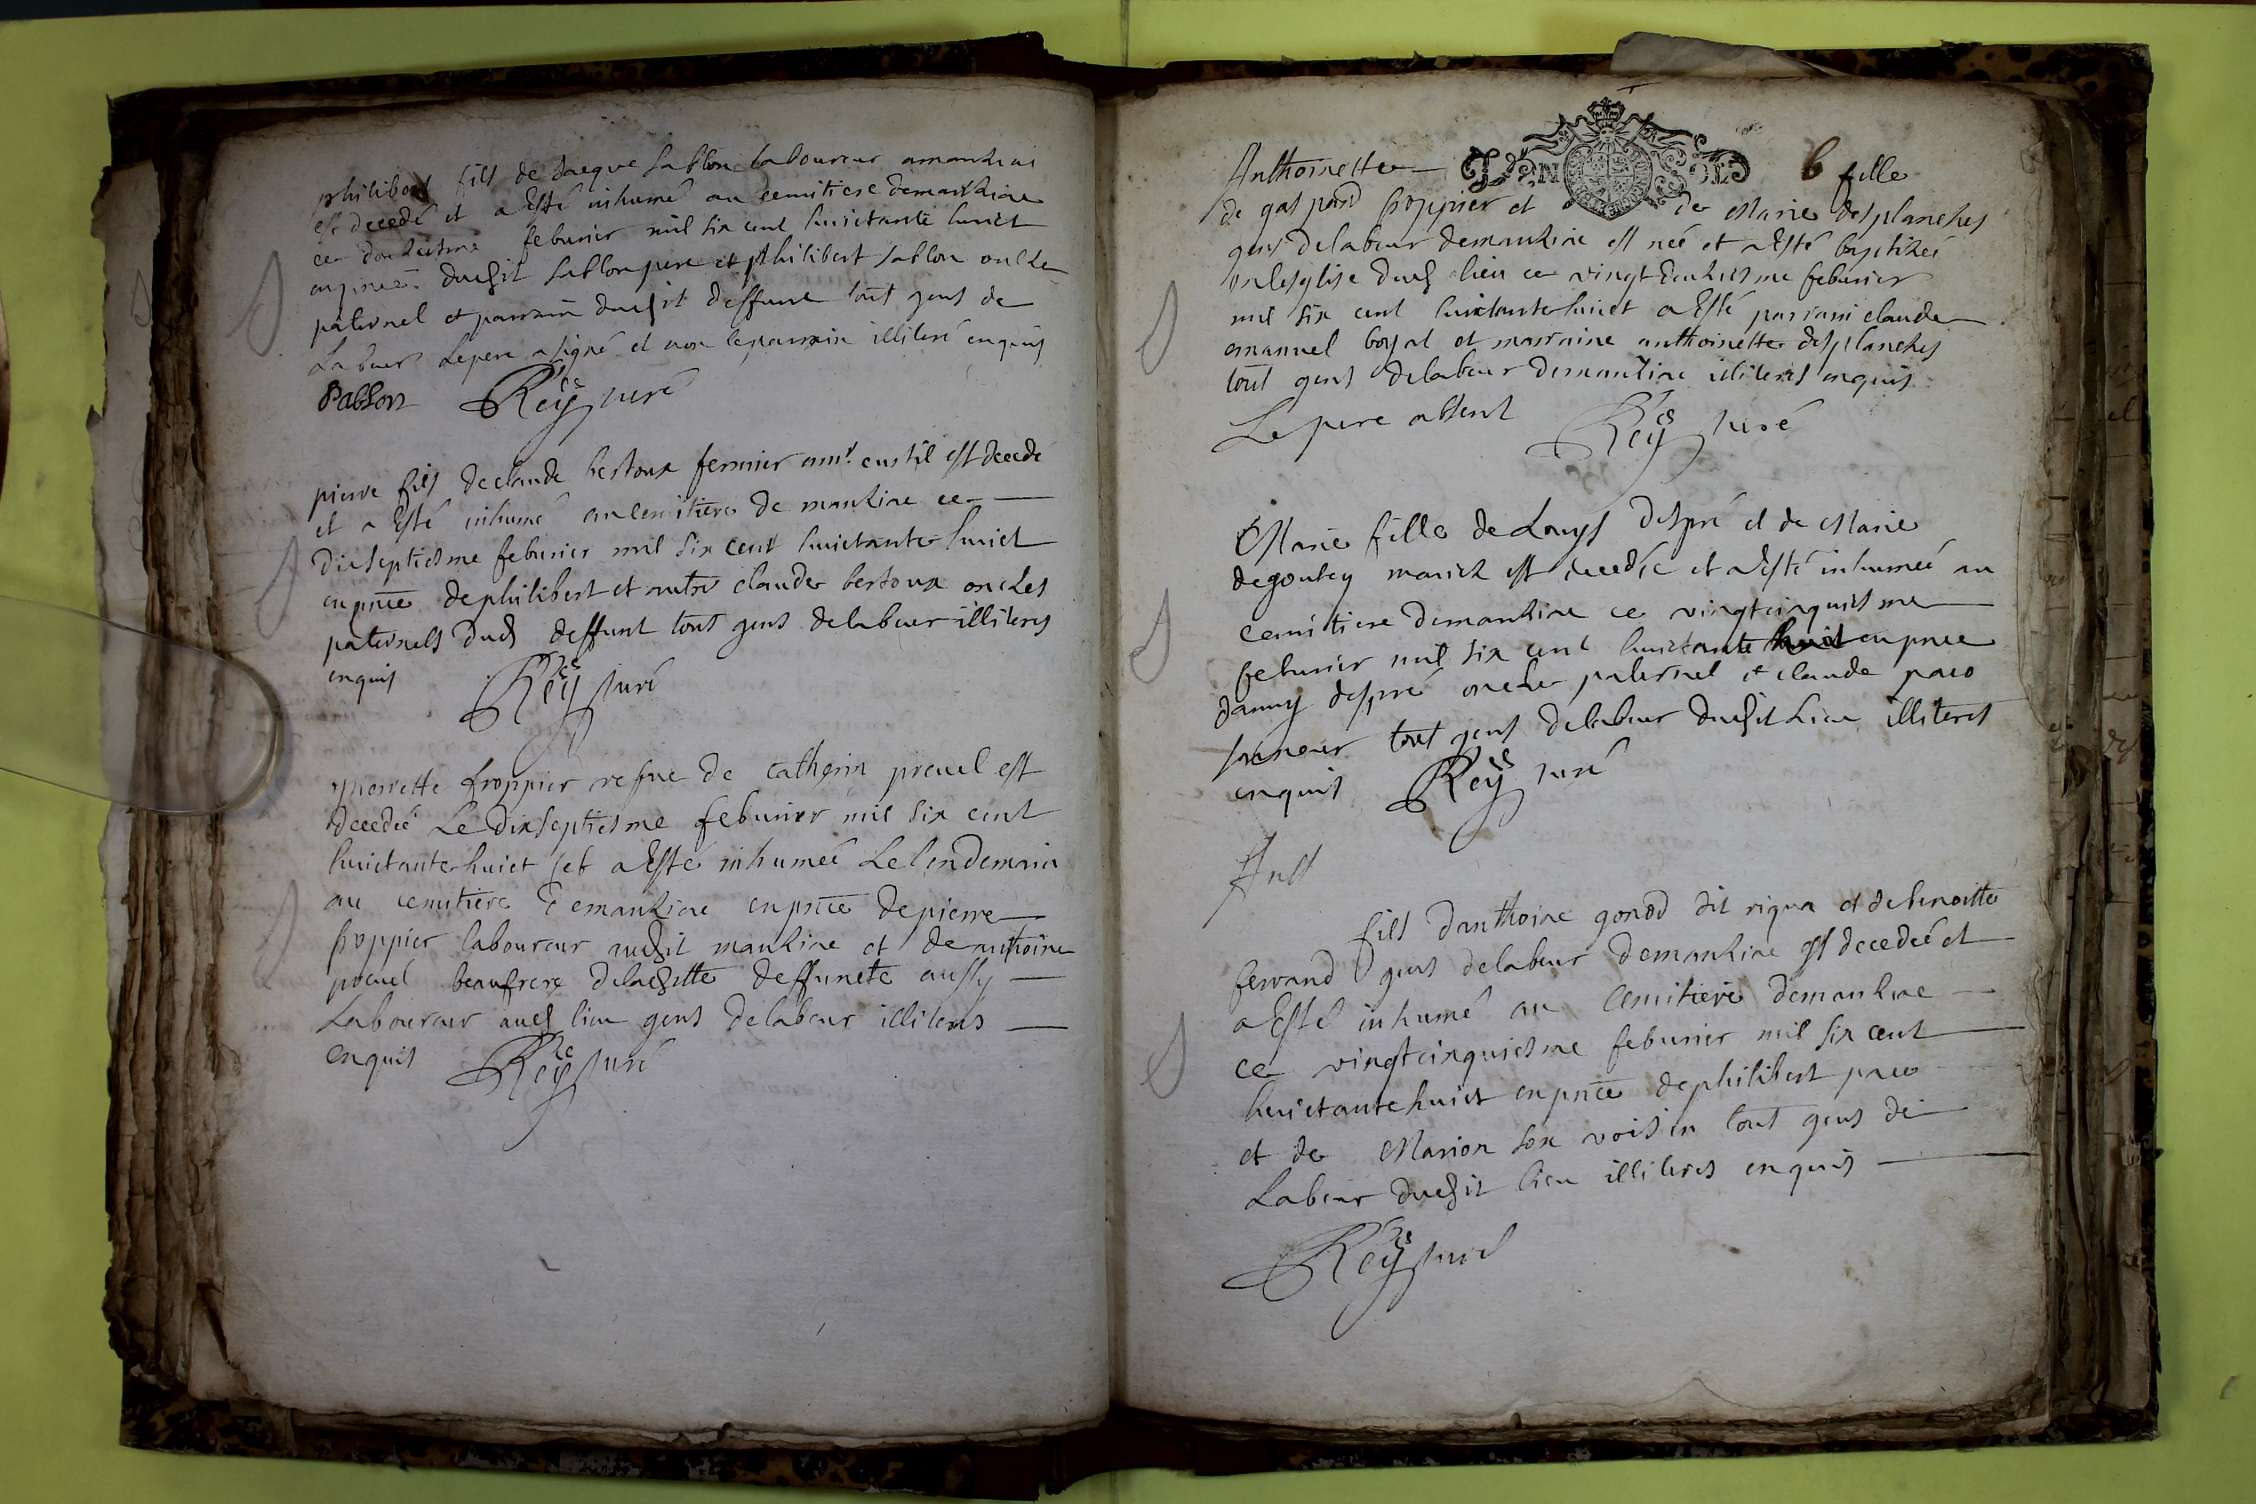 philibert fils de Jaeque Sablon laboureur amanzine
est decedé et a Esté inhumé au cemitiere demanzine
ce douziesme febvrier mil six cent huictante huict
en pnce dudit Sablon pere et philibert Sablon oncle
paternel et parrain dudit deffunt tout gens de
Labeur Lepere a signé et non leparrain illiteré enquis
Sablon Rey Curé
pierre fils declaude bertoux fermier est decedé
et a Esté inhumé au cemitiere de manzine ce
dixseptiesme febvrier mil six cent huictante huict
en pnce dephilibert et autre claude bertoux oncles
paternels dud deffunt tout gens delabeur illiteres
enquis Rey Curé
pierrette froppier vefve de Catherin preuel est
decedeé Le dixseptiesme febvrier mil six cent
huictante huict et a Esté inhumeé Le lendemain
au cemitiere demanzine en pnce depierre
froppier laboureur audit manzine et de anthoine
preuel beaufrere deladitte deffuncte aussy
Laboureur aud lieu gens delabeur illiteres
enquis Rey Curé
Anthoinette fille
GEN 6
de gaspard froppier et de Marie desplanches
gens delabeur demanzine est neé et a Esté baptizeé
en lesglise dud lieu ce vingt deuxiesme febvrier
mil six cent huictante huict a Esté parrain claude
emanuel boyat et marraine anthoinette desplanches
tout gens delabeur demanzine illiteres enquis
Le pere absent Rey Curé
Marie fille de Louys despré et de Marie
degoutey est decedée et a Esté inhumeé au
cemitiere demanzine ce vingtcinquiesme
febvrier mil six cent huictante huict en pnce
despré oncle paternel et claude
tout gens delabeur dudit Lieu illiteres
enquis Rey Curé
Ant
fils danthoine gonod dit et de benoitte
ferrand gens delabeur demanzine est decedeé et
a Esté inhumé au Cemitiere demanzine
ce vingtcinquiesme febvrier mil six cent
huictante huict en pnce dephilibert
et de Marion son voisin tout gens de
Labeur dudit lieu illiteres enquis
Rey Curé